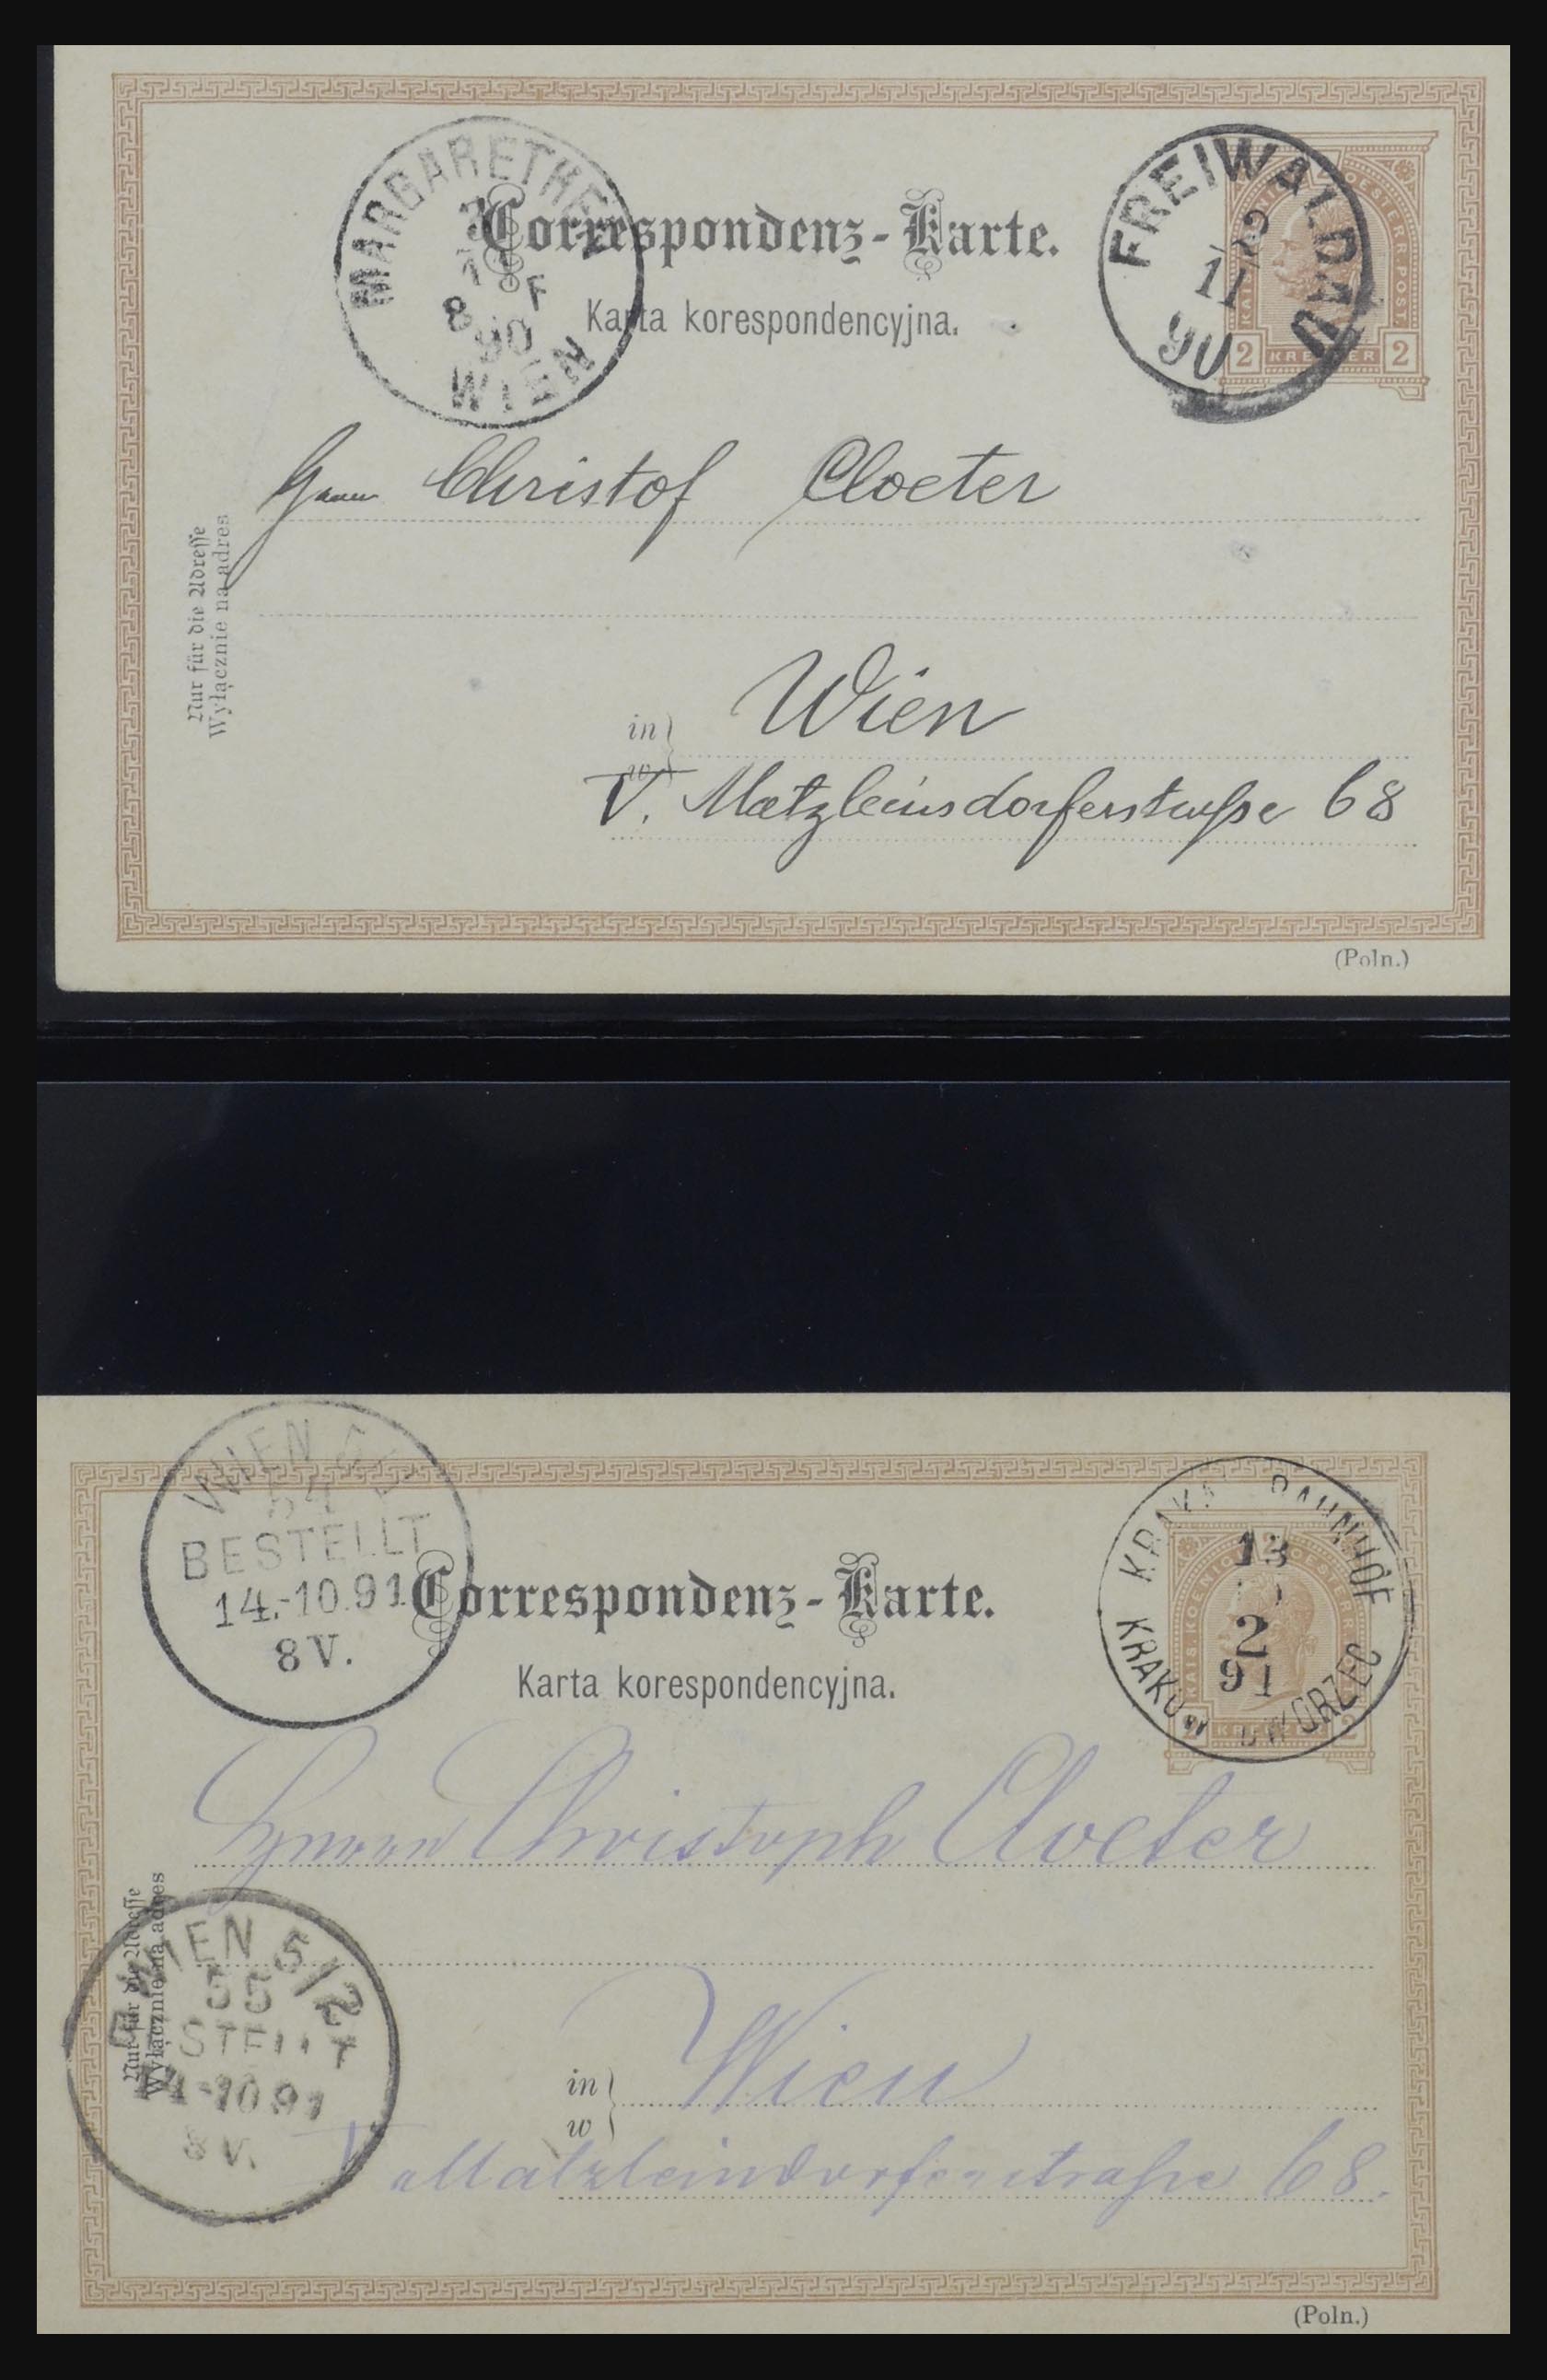 MARGARETHEN
8 F
90
WIEN
Correspondenz-Karte.
Karta korespondencyjna.
FREIWALDAU
2
11
90
2 KREUZER 2
Herrn Christof Cloeter
Nur für die Adresse
Wyłącznie na adres
in
w
Wien
V. Matzleinsdorferstraße 68
(Poln.)
WIEN
BESTELLT
14.-10.91
8 V.
Correspondenz-Karte.
Karta korespondencyjna.
BAHNHOF
13
2
91
KRAKÓW DWORZEC
KAIS. KOENIGL. OESTERR.
2 KREUZER 2
Herrn Christoph Cloeter
Nur für die Adresse
Wyłącznie na adres
WIEN 5/2
55
BESTELLT
14.-10.91
8 V.
in
w
Wien
V Matzleindorferstraße 68.
(Poln.)